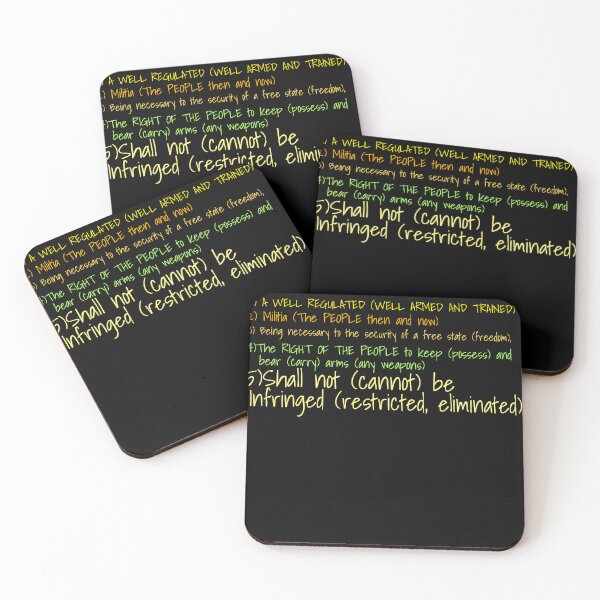 ) A WELL REGULATED (WELL ARMED AND TRAINED)
) Militia (The PEOPLE then and now)
) Being necessary to the security of a free state (freedom),
)The RIGHT OF THE PEOPLE to keep (possess) and
bear (carry) arms (any weapons)
5)Shall not (cannot) be
Infringed (restricted, elimin
A WELL REGULATED (WELL ARMED AND TRAINED)
) Militia (The PEOPLE then and now)
) Being necessary to the security of a free state (freedom),
)The RIGHT OF THE PEOPLE to keep (possess) and
bear (carry) arms (any weapons)
5)Shall not (cannot) be
Infringed (restricted, eliminated)
A WELL REGULATED (WELL ARMED AND TRAINED)
) Militia (The PEOPLE then and now)
) Being necessary to the security of a free state (freedom),
)The RIGHT OF THE PEOPLE to keep (possess) and
bear (carry) arms (any weapons)
5)Shall not (cannot) be
Infringed (restricted, eliminated)
) A WELL REGULATED (WELL ARMED AND TRAINED)
) Militia (The PEOPLE then and now)
) Being necessary to the security of a free state (freedom),
)The RIGHT OF THE PEOPLE to keep (possess) and
bear (carry) arms (any weapons)
5)Shall not (cannot) be
Infringed (restricted, eliminated)